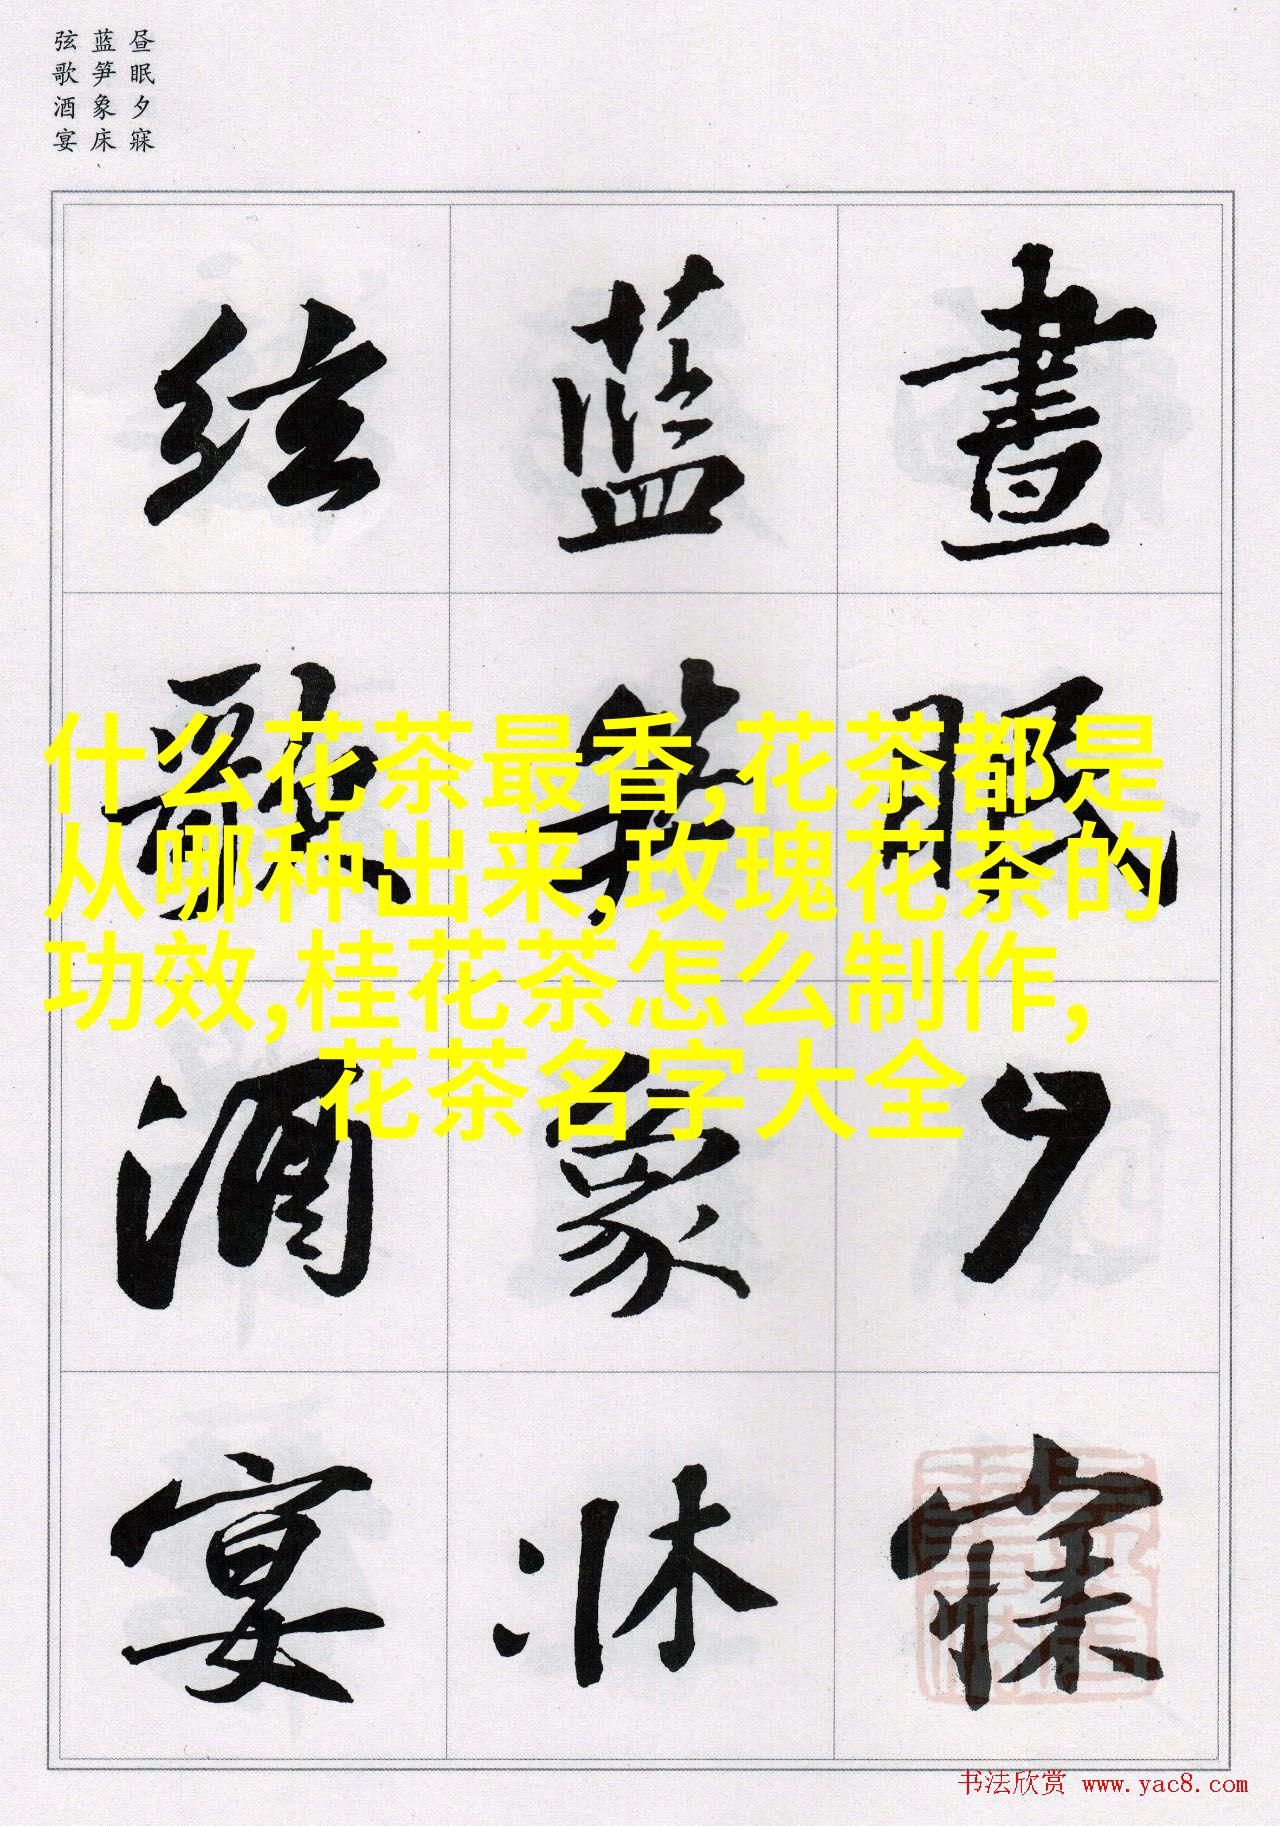 昼眠夕寐
蓝笋象床
弦歌酒宴
晝眠夕寐
蓝笋象牀
弦歌酒宴
什么花茶最香,花茶都是
从哪种出来,玫瑰花茶的
功效,桂花茶怎么制作,
花茶名字大全
书法欣赏 www.yac8.com